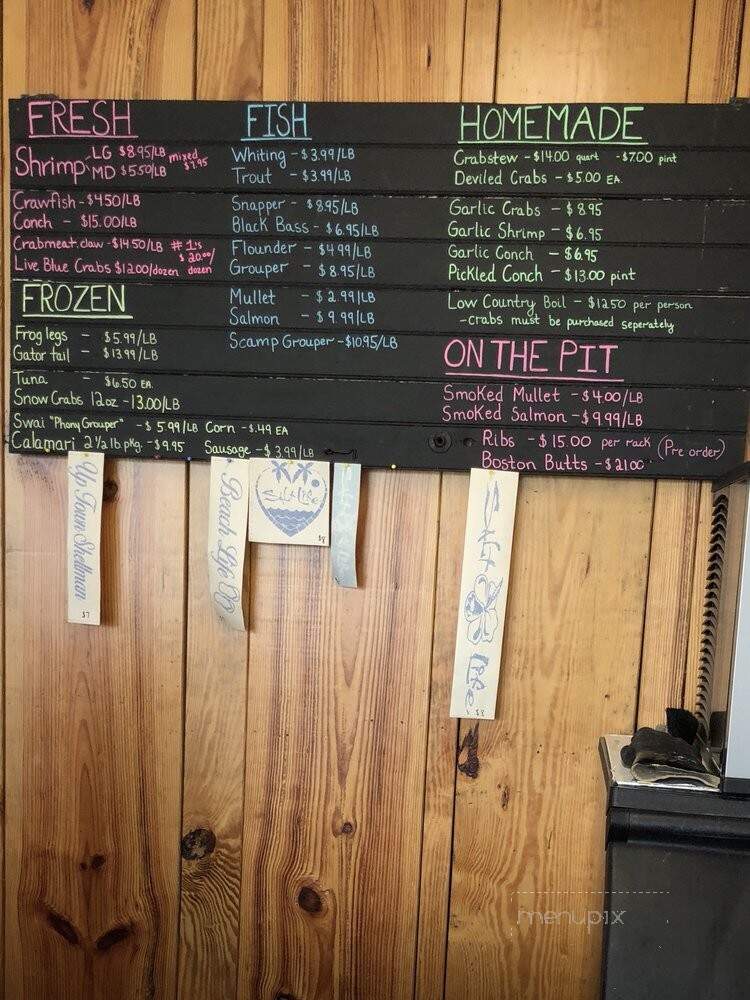 FRESH
Shrimp LG $8.95/LB mixed
MD $5.50/LB $7.95
Crawfish - $4.50/LB
Conch - $15.00/LB
Crabmeat.claw - $14.50/LB # 1's
$20.00/
Live Blue Crabs $12.00/dozen dozen
FROZEN
Frog legs - $5.99/LB
Gator tail - $13.99/LB
Tuna - $6.50 EA.
Snow Crabs 12oz - 13.00/LB
Swai "Phony Grouper" - $5.99/LB Corn - $.49 EA
Calamari 2 1/2 lb pkg. - $9.95 Sausage - $3.99/LB
FISH
Whiting - $3.99/LB
Trout - $3.99/LB
Snapper - $8.95/LB
Black Bass - $6.95/LB
Flounder - $4.99/LB
Grouper - $8.95/LB
Mullet - $2.99/LB
Salmon - $9.99/LB
Scamp Grouper - $10.95/LB
HOMEMADE
Crabstew - $14.00 quart - $7.00 pint
Deviled Crabs - $5.00 EA.
Garlic Crabs - $8.95
Garlic Shrimp - $6.95
Garlic Conch - $6.95
Pickled Conch - $13.00 pint
Low Country Boil - $12.50 per person
- crabs must be purchased seperately
ON THE PIT
Smoked Mullet - $4.00/LB
Smoked Salmon - $9.99/LB
Ribs - $15.00 per rack (Pre order)
Boston Butts - $21.00
Up Town Shellman
$7
Beach Life
Salt Life
$8
Salt Life
$8
menupix